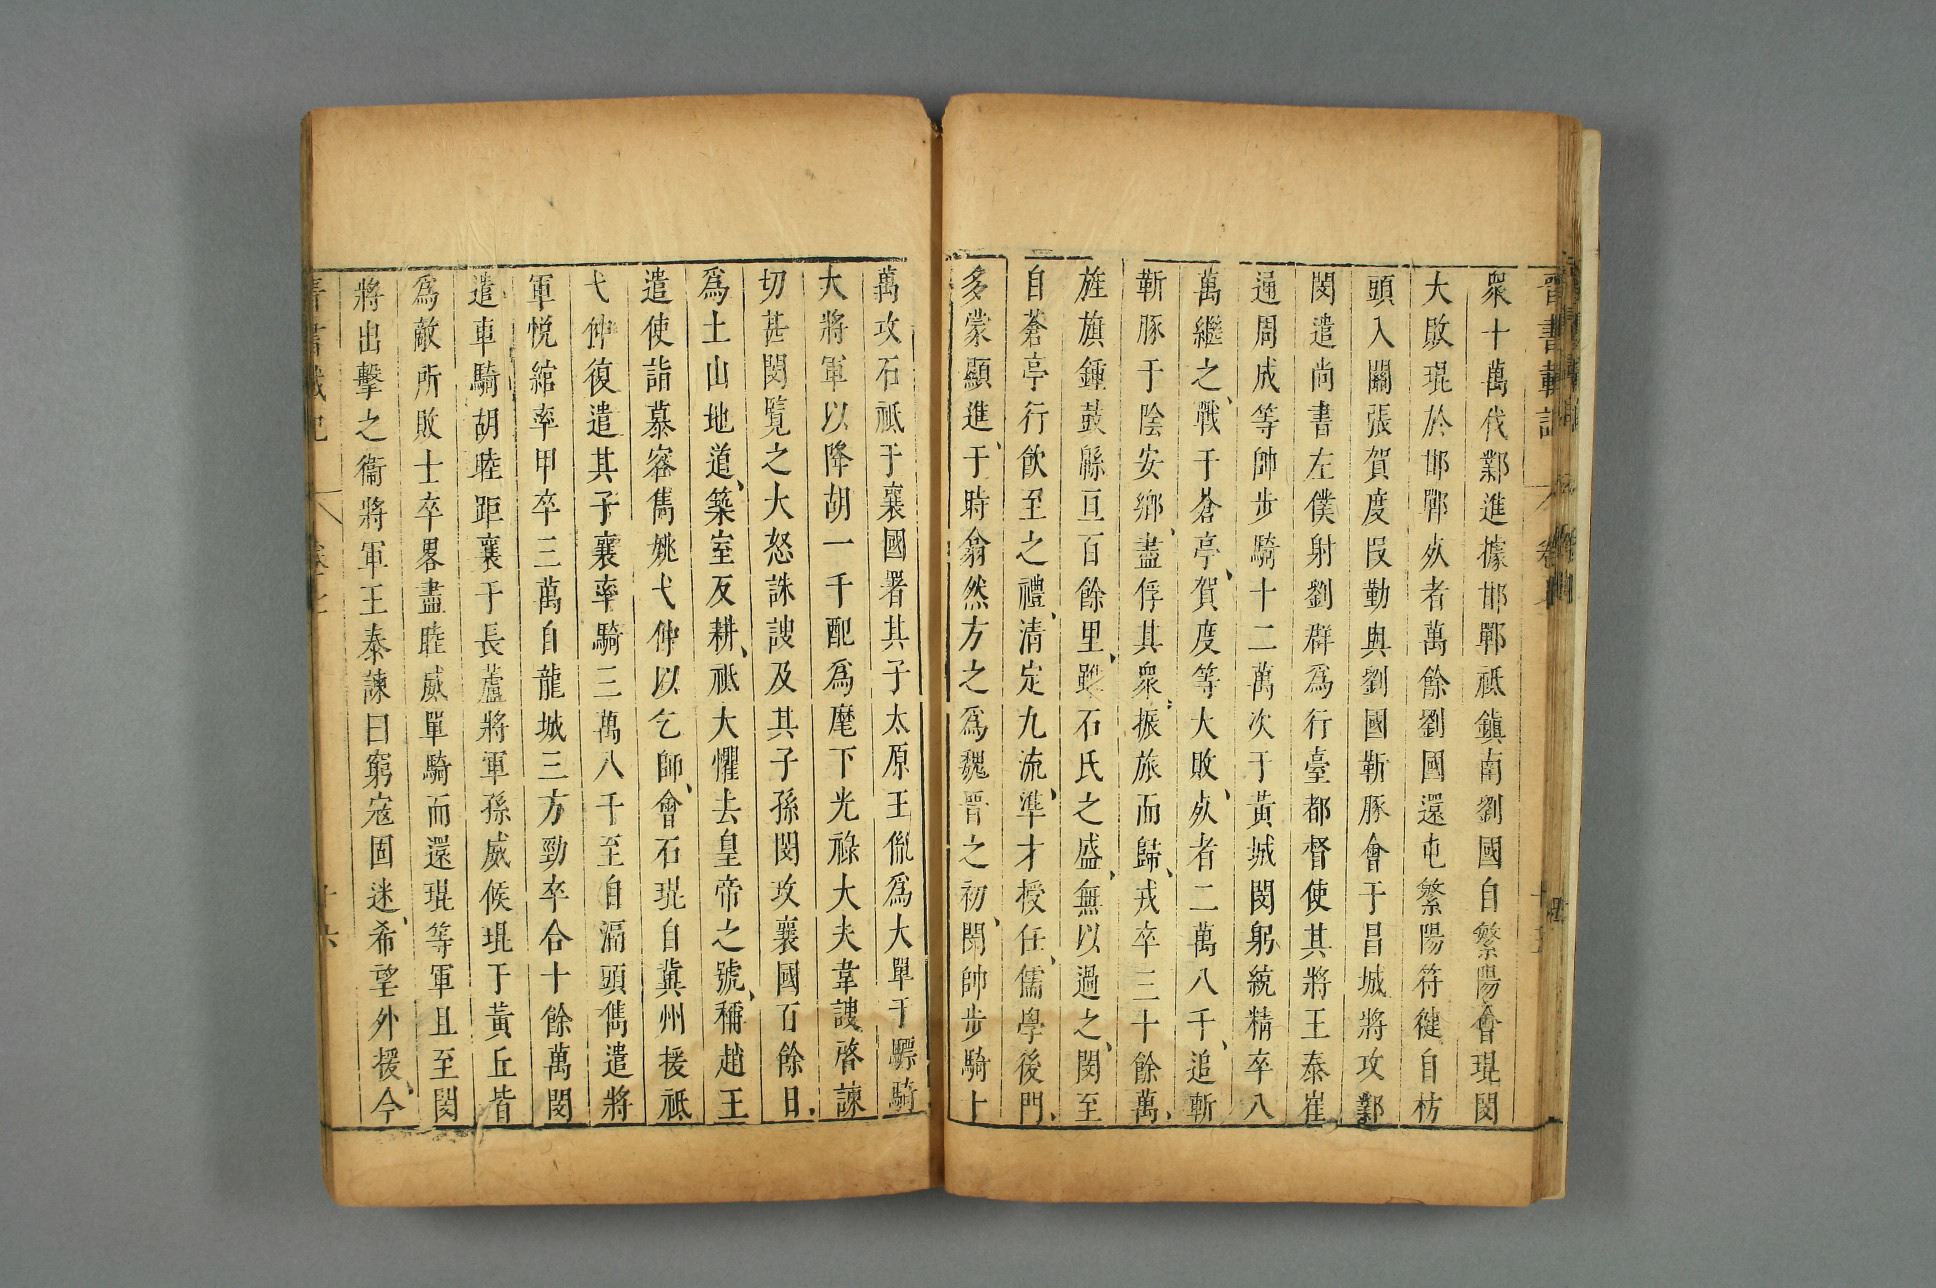 晉書載記 卷七 十五
衆十萬伐鄴進據邯鄲祗鎮南劉國自繁陽會琨閔
大敗琨於邯鄲死者萬餘劉國還屯繁陽苻健自枋
頭入關張賀度段勤與劉國靳豚會于昌城將攻鄴
閔遣尚書左僕射劉群爲行臺都督使其將王泰崔
通周成等帥步騎十二萬次于黃城閔躬統精卒八
萬繼之戰于蒼亭賀度等大敗死者二萬八千追斬
靳豚于陰安鄉盡俘其衆振旅而歸戎卒三十餘萬
旌旗鍾鼓緜亘百餘里雖石氏之盛無以過之閔至
自蒼亭行飲至之禮清定九流準才授任儒學後門
多蒙顯進于時翕然方之爲魏晉之初閔帥步騎十
萬攻石祗于襄國署其子太原王胤爲大單于驃騎
大將軍以降胡一千配爲麾下光祿大夫韋謏啓諫
切甚閔覽之大怒誅謏及其子孫閔攻襄國百餘日
爲土山地道築室反耕祗大懼去皇帝之號稱趙王
遣使詣慕容儁姚弋仲以乞師會石琨自冀州援祗
弋仲復遣其子襄率騎三萬八千至自滆頭儁遣將
軍悅綰率甲卒三萬自龍城三方勁卒合十餘萬閔
遣車騎胡睦距襄于長蘆將軍孫威候琨于黃丘皆
爲敵所敗士卒畧盡睦威單騎而還琨等軍且至閔
將出擊之衞將軍王泰諫曰窮寇固迷希望外援今
晉書載記 卷七 十六